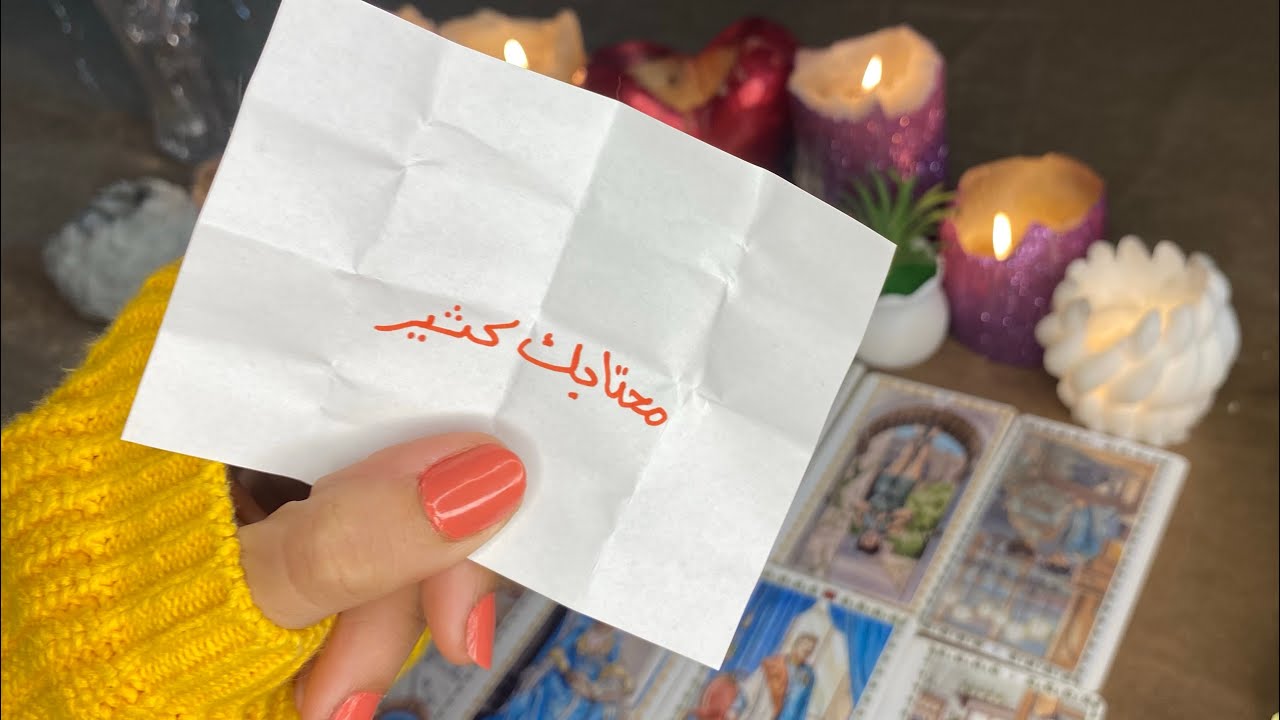 محتاجك كثير